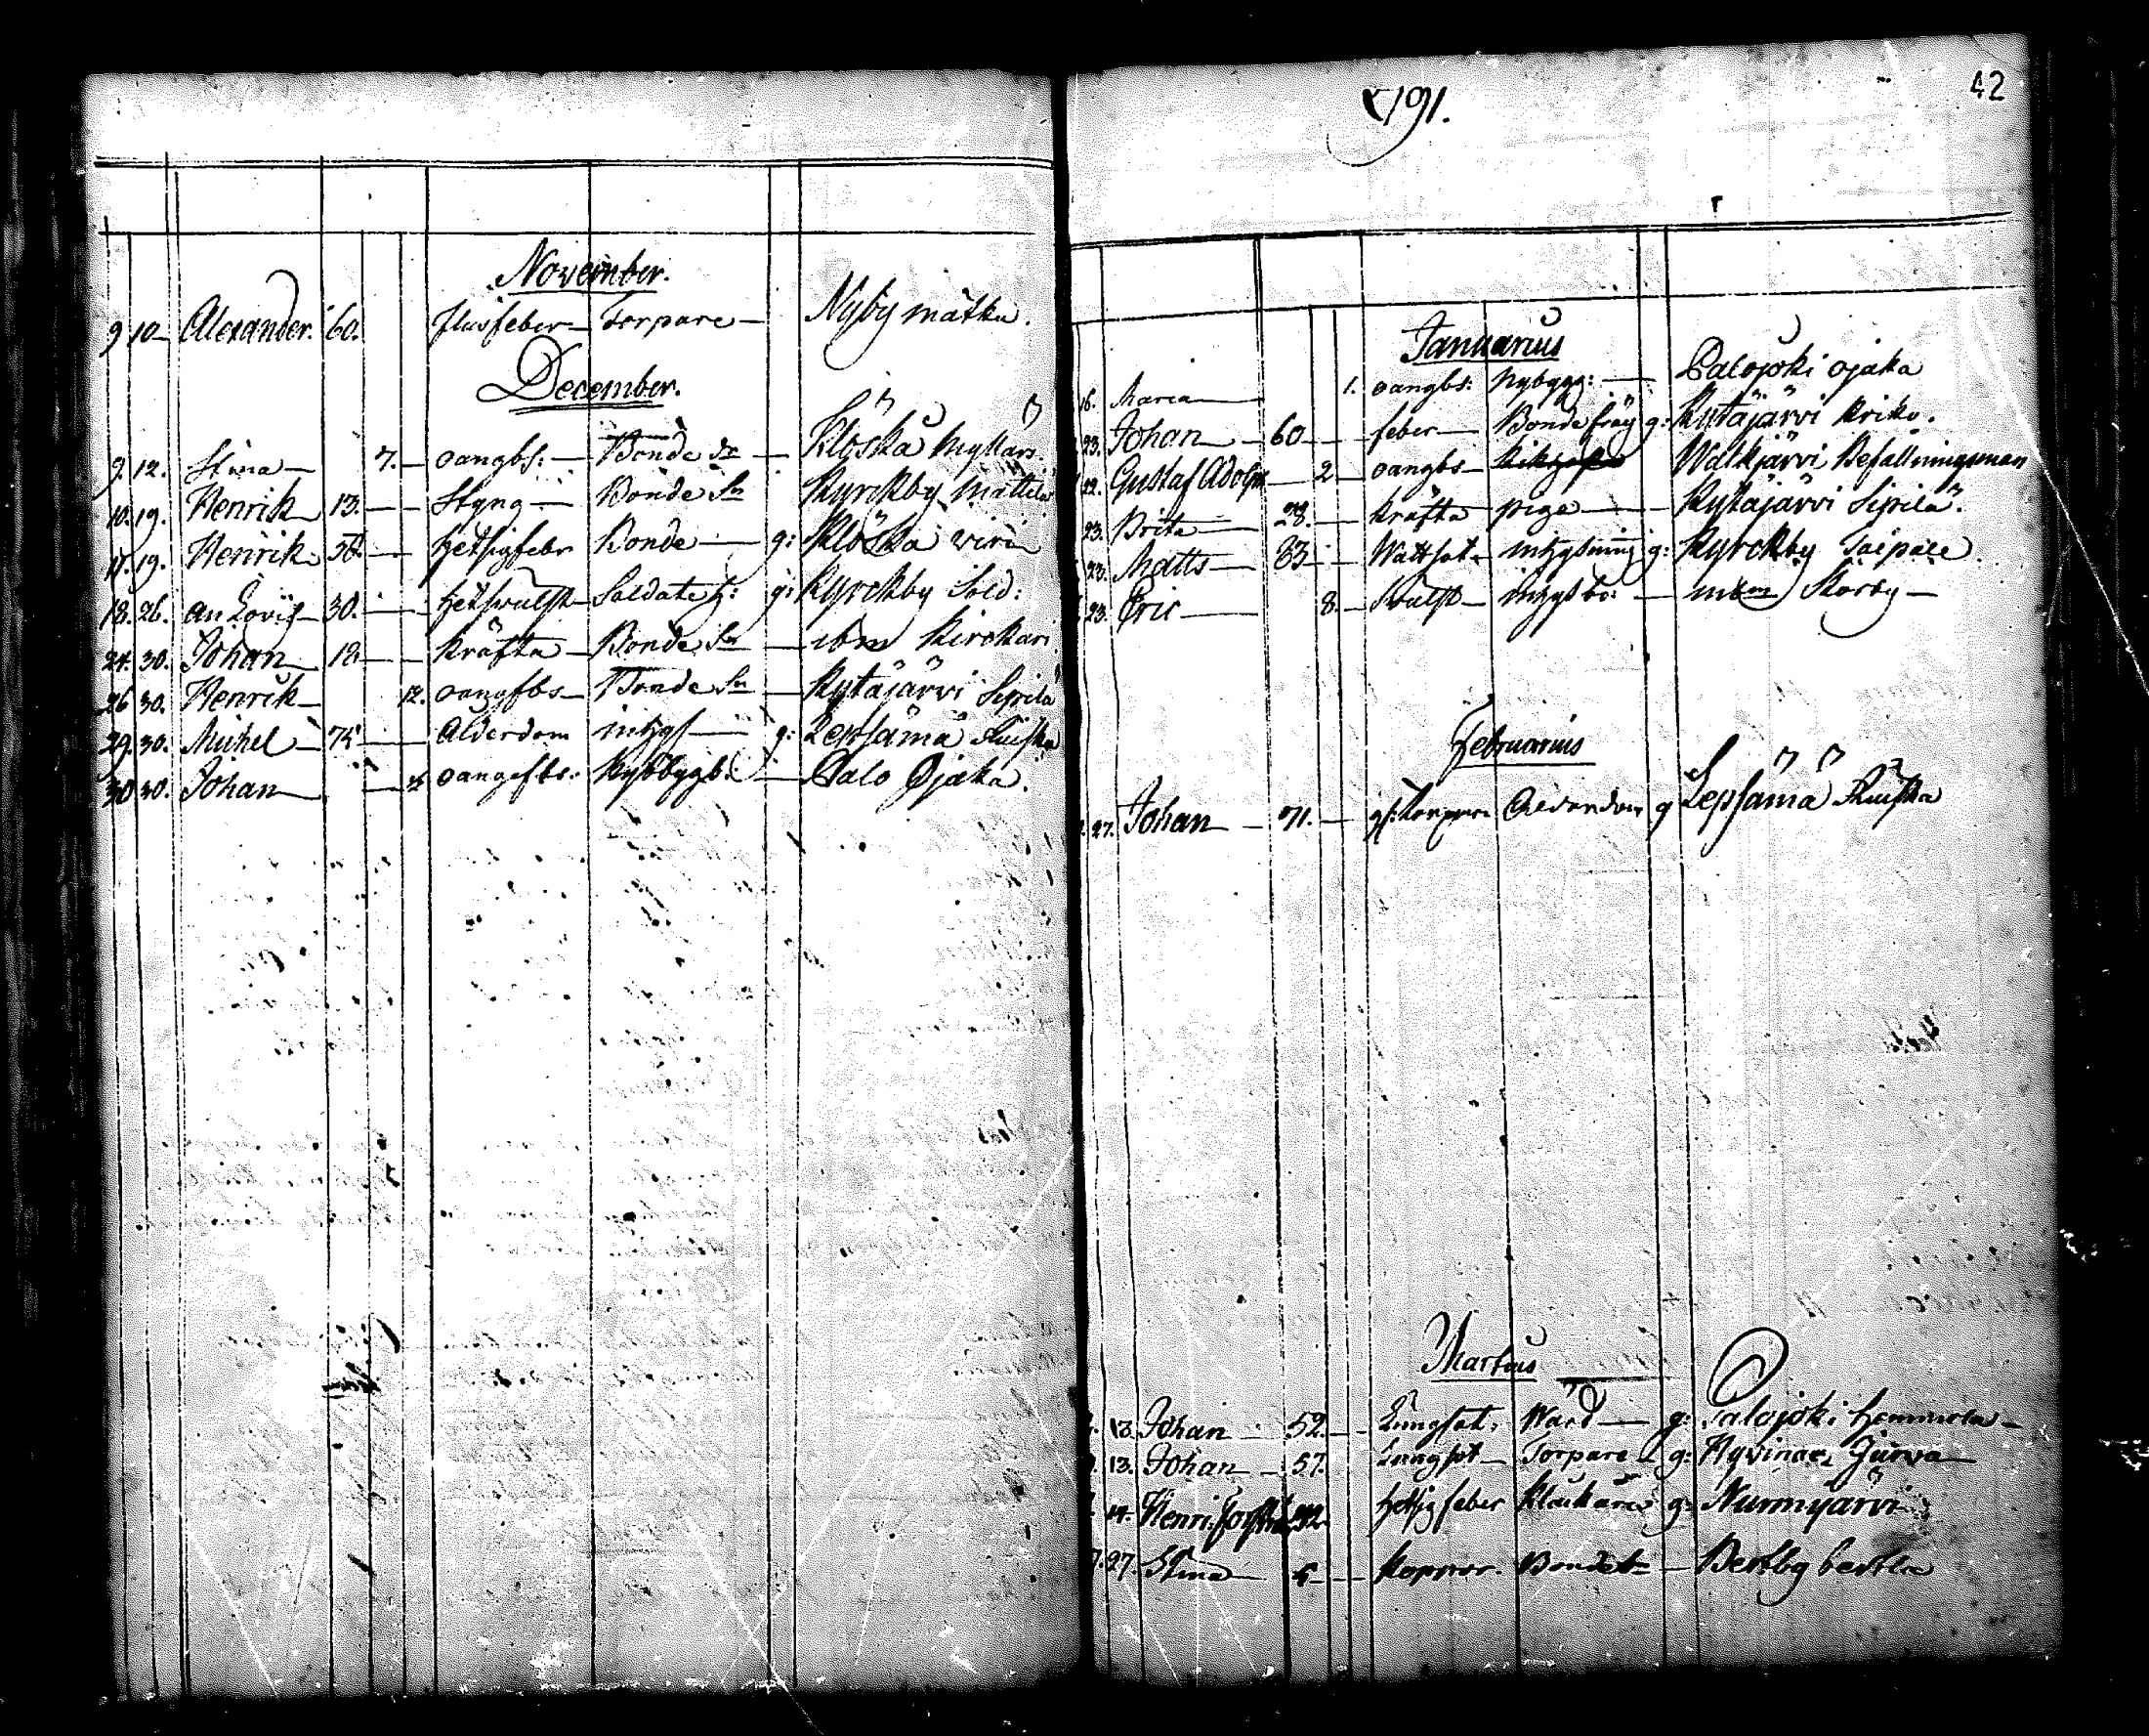 November.
9 10 Alexander. 60. flusfeber Torpare Nyby mätku.
December.
9. 12. Stina 7. oangbs: Bonde dr Klöskå Myllärs
10. 19. Henrik 13. Styng Bonde Sn Kyrckby Mattila
17. 19. Henrik hetsigfebr Bonde g: Klöska viri
18. 26. An Lovis 30. hetswulst Soldate h: g: Kyrckby Sold:
24. 30. Johan 18 kräfta Bonde Sn ibm Kirckari
26 30. Henrik 12. oangfbs Bonde Sn Kytäjärvi Siprilä
29. 30. Michel 75 Alderdom inhys g: Lepsämä
30 30. Johan oangfbs. Nybbygb. Palo Ojaka.
42
1791.
Januarius
16. Maria 1. oangbs: Nybygg: Palojoki ojaka
23. Johan 60 feber Bonde g: Kytäjärvi Kriko.
22. Gustaf Adolph 2 oangbs Walkjärvi Befallningsman
23. Brita 28. kräfta pige Kytäjärvi Siprilä.
23. Matts 83 Wattsot g: Kyrckby Taipale.
23. Eric 8. Swulst inhys bo: Storby
Februarius
27. Johan 71. Alderdom g Lepsämä
Martius
13. Johan 52. Lungsot. Wärd g: Palojoki Hemmola
13. Johan 57. Lungsot Torpare g: Hyvinge Jurva
14. Henri hetsig feber Klockare g: Nurmijärvi
27. Stina Koppor. Bonde Bertby bertila